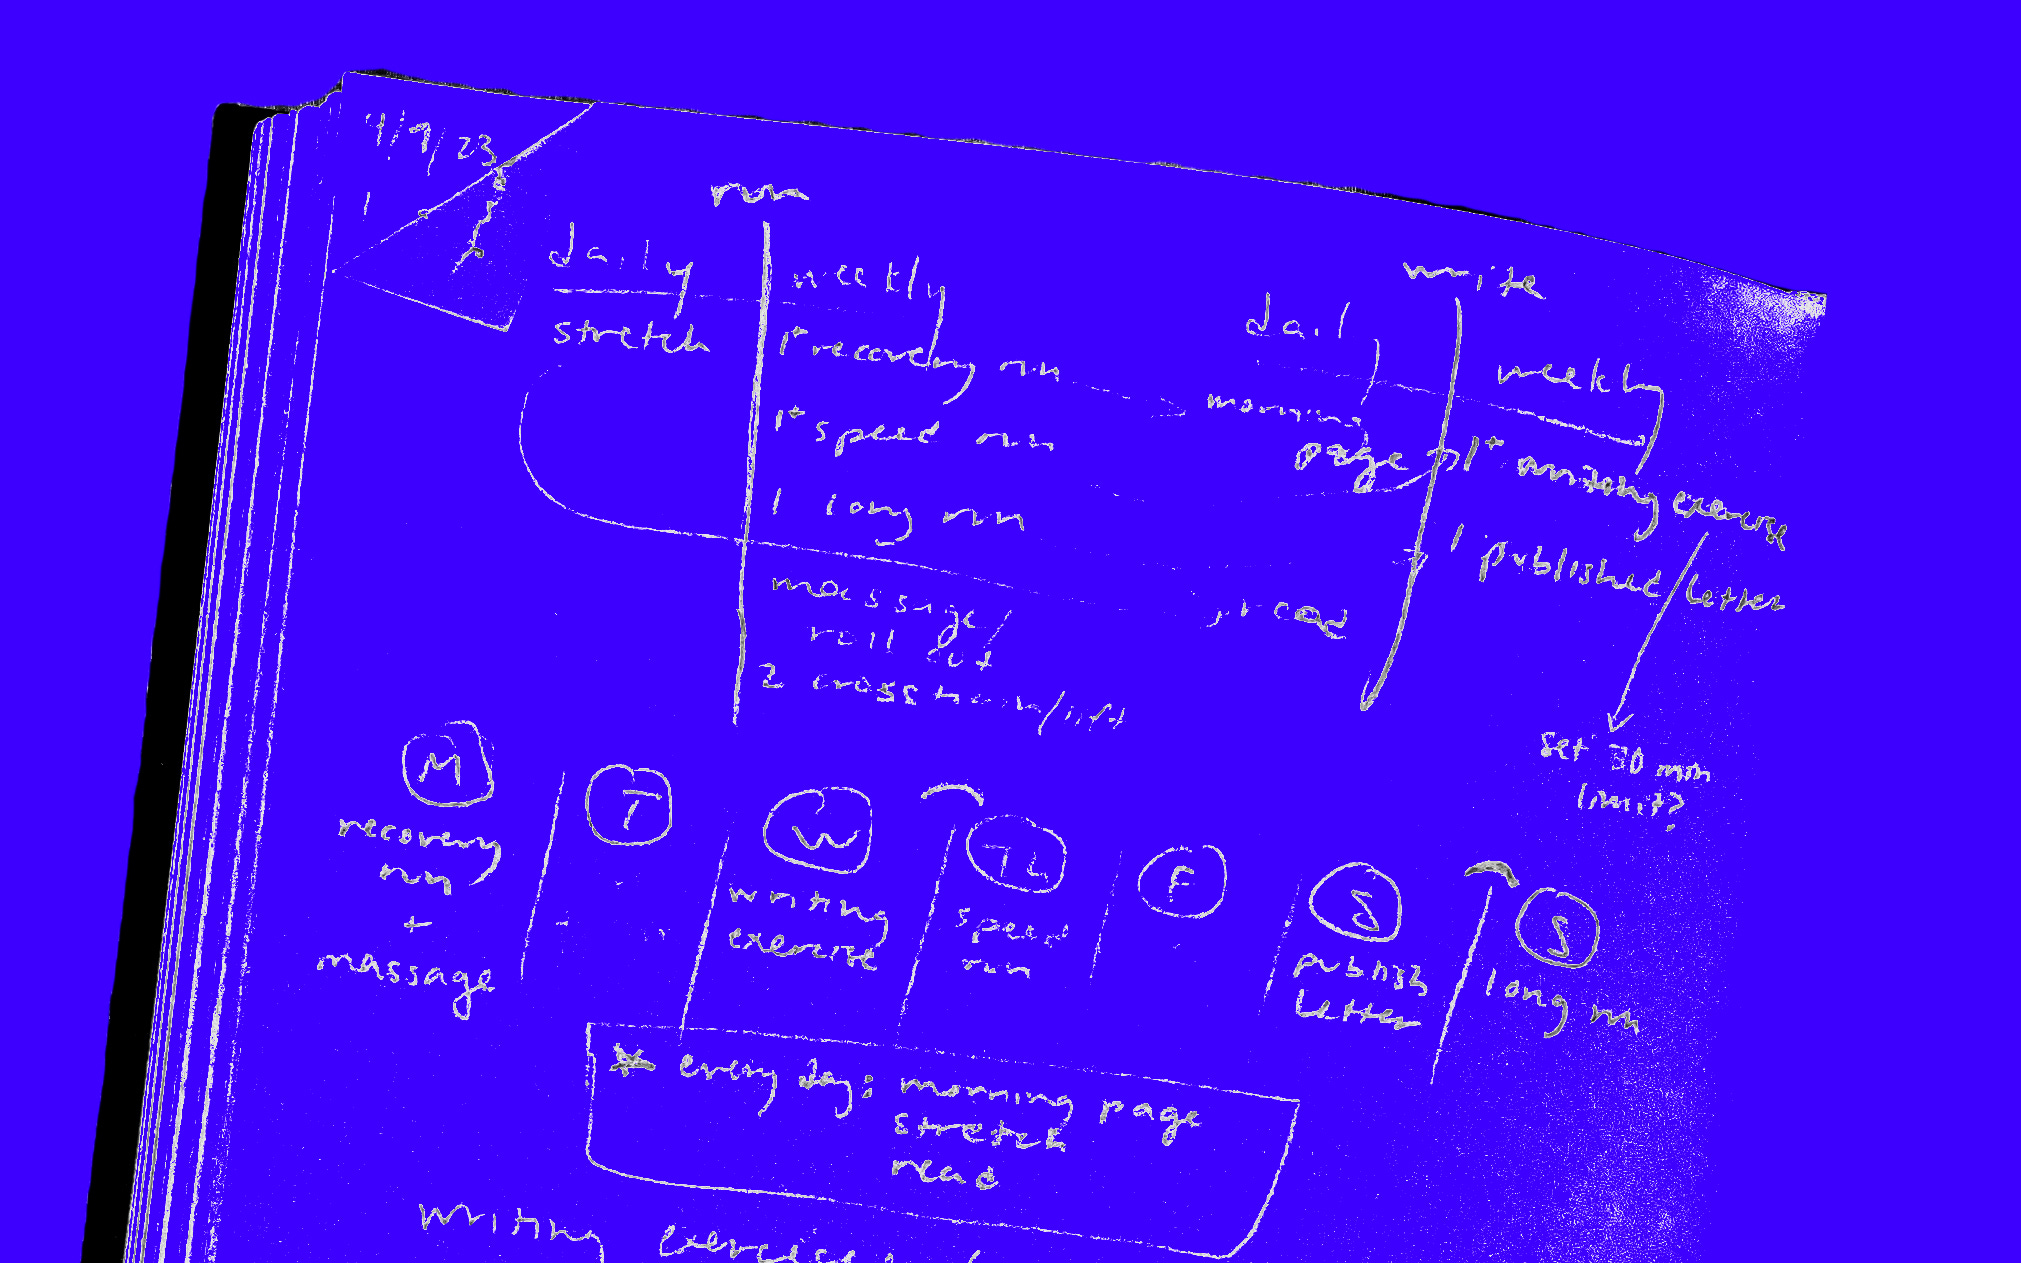 4/9/23
run
daily weekly
stretch 1+ recovery run
1+ speed run
1 long run
massage/
roll out
2 crosstrain/lift
write
daily weekly
morning
page 1+ writing exercise
1 published letter
read
set 30 min
limit?
M T W Th F S S
recovery
run
+
massage
writing
exercise
speed
run
publish
letter
long run
* every day: morning page
stretch
read
writing exercise